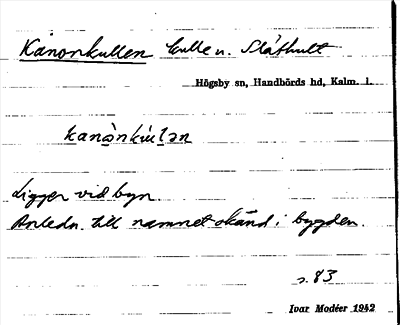 Kanonkullen kulle n. Slåthult
Högsby sn, Handbörds hd, Kalm. l.
kanònkúlən
Ligger vid byn.
Anledn. till namnet okänd i bygden.
s. 83
Ivar Modéer 1942